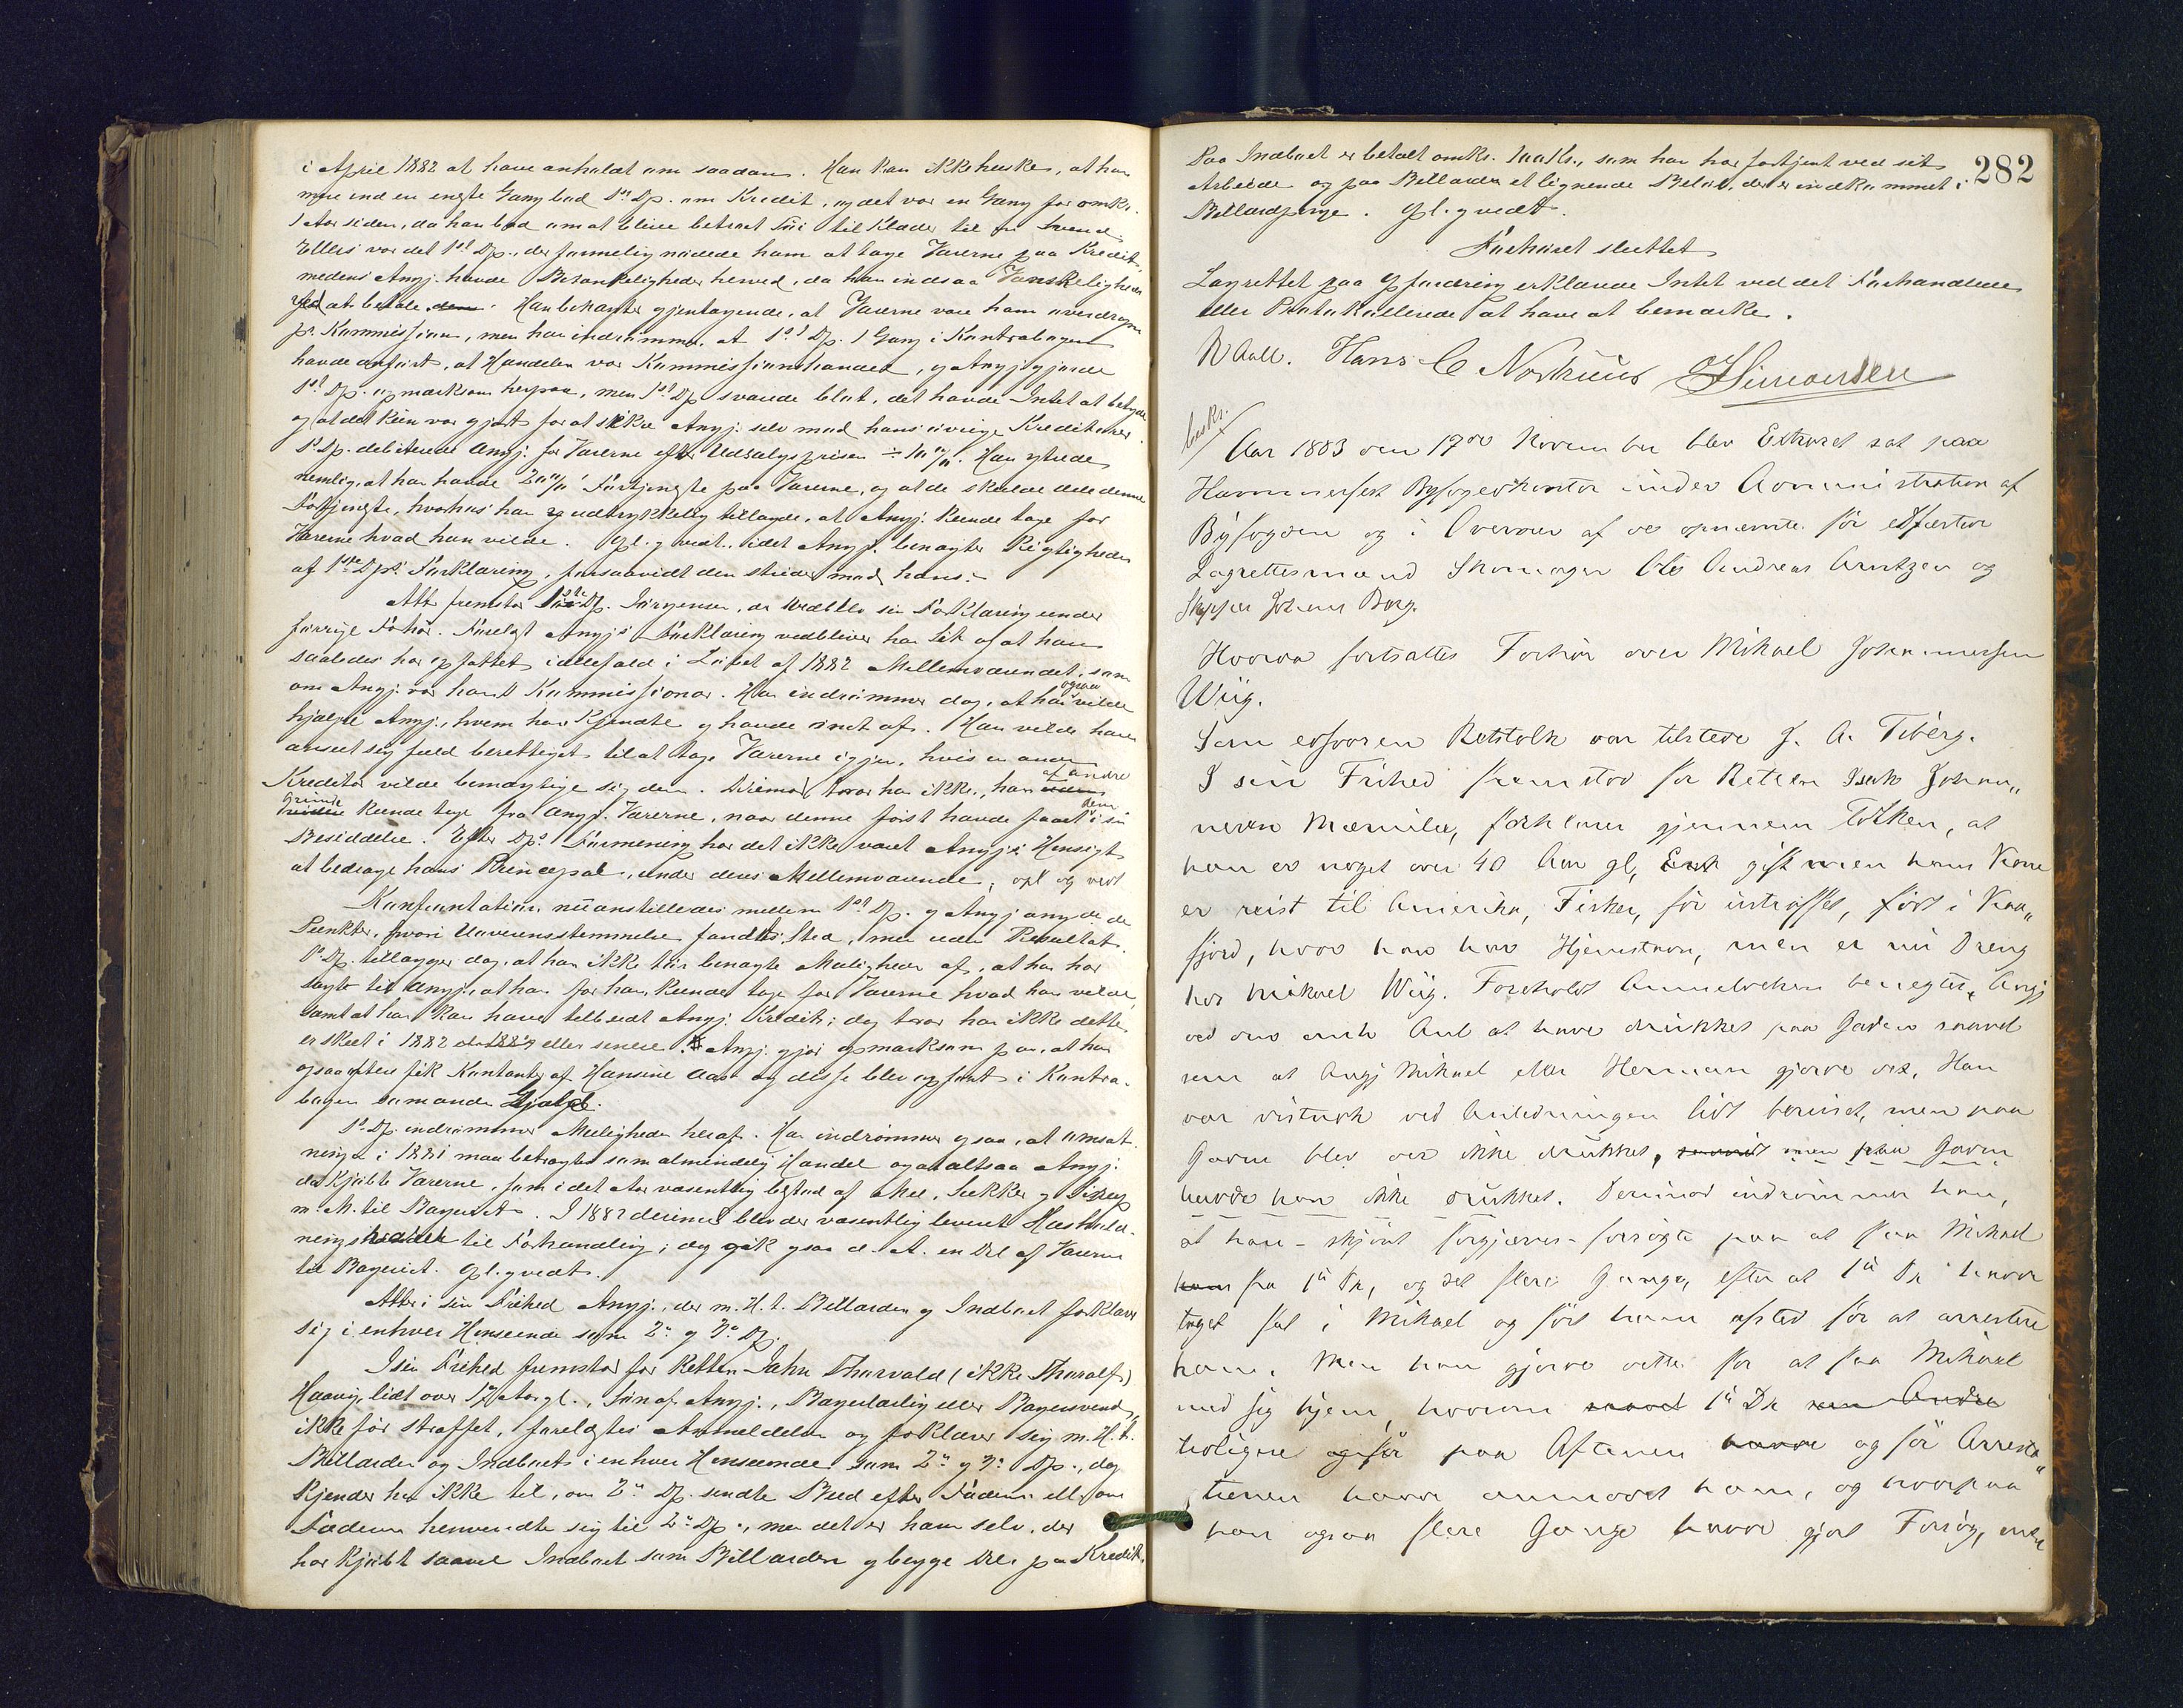 i April 1882 at have anholdt om saadan. Han kan ikke huske, at han
mere end en eneste Gang bad 1ste Dp. om Kredit, og det var en Gang for omkr.
1 Aar siden, da han bad om at blive betroet Tøi til Klæder til en Svend.
Ellers var det 1ste Dp., der formelig nødede ham at tage Varerne paa Kredit,
medens Angj. havde Betænkeligheder herved, da han indsaa Vanskeligheden
ved at betale dem. Han benægter gjentagende, at Varerne vare ham overdragne
pr. Kommission, men han indrømmer, at 1ste Dp. 1 Gang i Kontrabogen
havde anført, at Handelen var Kommissionshandel, og Angj. gjorde
1ste Dp. opmærksom herpaa, men 1ste Dp. svarede blot, det havde Intet at betyde
og at det kun var gjort for at sikre Angj. selv mod hans øvrige Kreditorer.
1ste Dp. debiterede Angj. for Varerne efter Udsalgsprisen ÷ 10 %. Han ytrede
nemlig, at han havde 20 % Fortjeneste paa Varerne, og at de skulde dele denne
Fortjeneste, hvorhos han og udtrykkelig tillagde, at Angj. kunde tage for
Varerne hvad han vilde. Opl. og vedt. idet Angj. benægter Rigtigheden
af 1ste Dps Forklaring, forsaavidt den strider mod hans.
Atter fremstod 1ste Dp. Jørgensen, der vedblev sin Forklaring under
forrige Forhør. Forelagt Angjs Forklaring vedbliver han Sit og at han
saaledes har opfattet iallefald i Løbet af 1882 Mellemværendet, som
om Angj. var hans Kommissionær. Han indrømmer dog, at han ogsaa vilde
hjælpe Angj., hvem han kjendte og havde ondt af. Han vilde have
anseet sig fuld berettiget til at tage Varerne igjen, hvis en anden
Kreditor vilde bemægtige sig dem. Derimod tror han ikke, han af andre
Grunde kunde tage fra Angj. Varerne, naar denne først havde faaet dem i sin
Besiddelse. Efter Dps Formening har det ikke været Angjs Hensigt
at bedrage hans Principal, under deres Mellemværende, opl og vedt
Konfrontation nu anstilledes mellem 1ste Dp. og Angj angaaende de
Punkter, hvori Uoverensstemmelse fandtes Sted, men uden Resultat.
1ste Dp. tillægger dog, at han ikke tør benægte Muligheden af, at han har
sagt til Angj., at han for ham kunde tage for Varerne hvad han vilde,
samt at han kan have tilbudt Angj. Kredit; dog tror han ikke dette
er skeet i 1882 eller senere. Angj. gjør opmærksom paa, at han
ogsaa oftere fik Kontanter af Hansine Aas og disse blev opført i Kontra-
bogen som anden Hjælp.
1ste Dp. indrømmer Muligheden heraf. Han indrømmer ogsaa, at Omsæt-
ningen i 1881 maa betragtes som almindelig Handel og at altsaa Angj.
da kjøbte Varerne, som i det Aar væsentlig bestod af Mel, Sukker og Sirup
m. M. til Bageriet. I 1882 derimod blev der væsentlig leveret Hushold-
ningsartikler til Forhandling; dog gik ogsaa d. A. en Del af Varerne
til Bageriet. Opl. og vedt.
Atter i sin Frihed Angj., der m. H. t. Billarden og Indboet forklarer
sig i enhver Henseende som 2den og 3die Dp.
I sin Frihed fremstod for Retten John Thorvald (ikke Thoralf)
Haavig, lidt over 17 Aar gl., Søn af Angj., Bagerlærling eller Bagersvend,
ikke før straffet, forelagtes Anmeldelsen og forklarer sig m. H. t.
Billarden og Indboet i enhver Henseende som 2den og 3die Dp., dog
kjender han ikke til, om 2den Dp. sendte Bud efter Faderen eller om
Faderen henvendte sig til 2den Dp., men det er ham selv, der
har kjøbt saavel Indboet som Billarden og begge Dele paa Kredit.
282
Paa Indboet er betalt omkr. 100 Kr., som han har fortjent ved sit
Arbeide og paa Billarden et lignende Beløb, der er indkommet i
Billardpenge. Opl. og vedt.
Forhøret sluttet
Lagrettet paa Opfordring erklærede Intet ved det Forhandlede
eller Protokollerede at have at bemærke.
R Aall. Hans C Nostrius Simonsen
beskr.
Aar 1883 den 17de November blev Extraret sat paa
Hammerfest Byfogedkontor under Administration af
Byfogden og i Overvær af de opnævnte før edfæstede
Lagrettesmænd Skomager Ole Andreas Arntzen og
Skipper Johan Borg.
Hvorda fortsattes Forhør over Mikael Johannessen
Wiig.
Som edsvoren Rettstolk var tilstede J. A. Tiberg.
I sin Frihed fremstod for Retten Isak Johan„
nesen forklarer gjennem Tolken, at
han er noget over 40 Aar gl, gift men hans Kone
er reist til Amerika, Fisker, før ustraffet, født i Kaa„
fjord, hvor han har Hjemstavn, men er nu Dreng
hos Mikael Wiig. Foreholdt Anmeldelsen benegter, Angj
at have drukket paa Gaden saavel
som at Angj Mikael eller Herman gjorde det. Han
var vistnok ved Anledningen lidt beruset, men paa
Gaden blev der ikke drukket, men paa Gaden
havde han ikke drukket. Derimod indrømmer han,
at han - skjønt forgjæves - forsøgte paa at faa Mikael
ham fra 1ste Dp, og det flere Gange, efter at 1ste Dp havde
taget fat i Mikael og ført ham afsted for at arrestere
ham. Men han gjorde dette for at faa Mikael
med sig hjem, hvorom 1ste Dp
tidligere og før paa Aftenen havde og før Arresta„
tionen havde anmodet ham, og hvorpaa
han ogsaa flere Gange havde gjort Forsøg, men